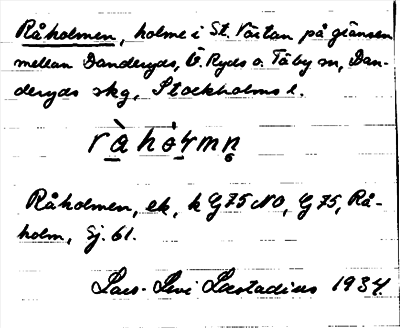 Råholmen, holme i St. Värtan på gränsen
mellan Danderyds, Ö. Ryds o. Täby sn, Dan-
deryds skg, Stockholms l.
Råholmen, ek, k G75 NO, G 75, Rå-
holm, Sj. 61.
Lars-Levi Læstadius 1934